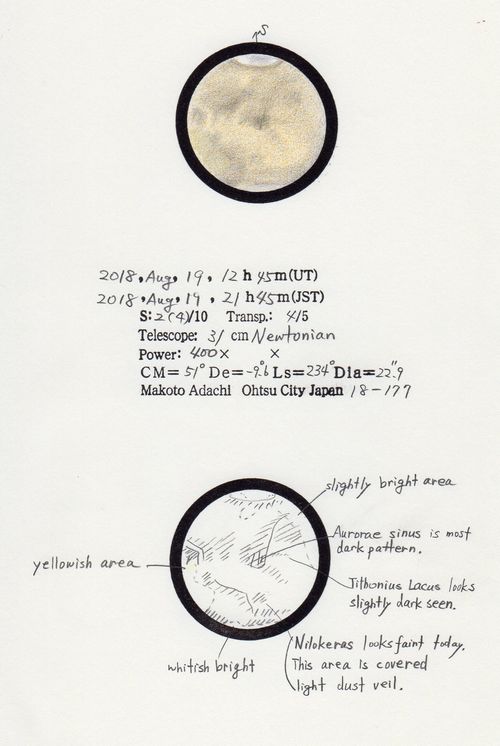 S
2018, Aug, 19, 12 h 45 m (UT)
2018, Aug, 19, 21 h 45 m (JST)
S: 2(4)/10 Transp.: 4/5
Telescope: 31 cm Newtonian
Power: 400× ×
CM= 51° De= -9.°6 Ls= 234° Dia= 22."9
Makoto Adachi Ohtsu City Japan 18-177
slightly bright area
Aurorae sinus is most
dark pattern.
yellowish area
Tithonius Lacus looks
slightly dark seen.
Nilokeras looks faint today.
This area is covered
light dust veil.
whitish bright